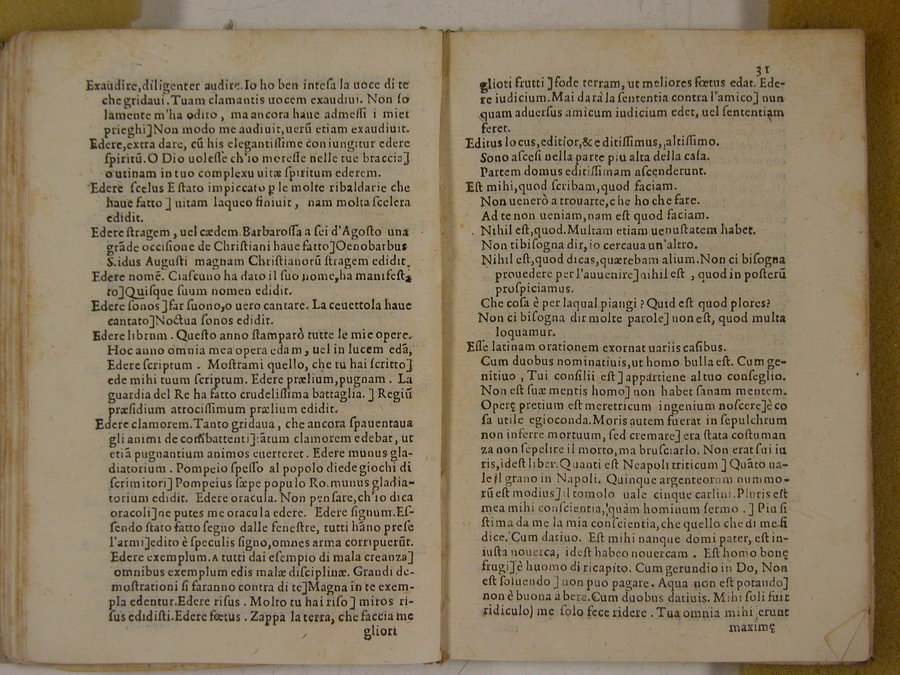 Exaudire,diligenter audire.Io ho ben intesa la uoce di te
che gridaui.Tuam clamantis uocem exaudiui. Non so
lamente m'ha odito, ma ancora haue admessi i miei
prieghi]Non modo me audiuit,uerũ etiam exaudiuit.
Edere,extra dare, cũ his elegantissime coniungitur edere
spiritũ.O Dio uolesse ch'io moresse nelle tue braccia]
o utinam in tuo complexu uitæ spiritum ederem.
Edere scelus E stato impiccato p le molte ribaldarie che
haue fatto ] uitam laqueo finiuit, nam multa scelera
edidit.
Edere stragem, uel cædem. Barbarossa a sei d'Agosto una
grãde occisione de Christiani haue fatto]Oenobarbus
S.idus Augusti magnam Christianorũ stragem edidit.
Edere nomẽ. Ciascuno ha dato il suo nome,ha manifesta
to]Quisque suum nomen edidit.
Edere sonos ]far suono,o uero cantare. La ceuettola haue
cantato]Noctua sonos edidit.
Edere librum. Questo anno stamparò tutte le mie opere.
Hoc anno omnia mea opera edam, uel in lucem edã,
Edere scriptum. Mostrami quello, che tu hai scritto]
ede mihi tuum scriptum. Edere prælium,pugnam. La
guardia del Re ha fatto crudelissima battaglia. ] Regiũ
præsidium atrocissimum prælium edidit.
Edere clamorem. Tanto gridaua, che ancora spauentaua
gli animi de combattenti]:ãtum clamorem edebat, ut
etiã pugnantium animos euerteret. Edere munus gla-
diatorium. Pompeio spesso al popolo diede giochi di
scrimitori] Pompeius sæpe populo Ro.munus gladia-
torium edidit. Edere oracula. Non pensare,ch'io dica
oracoli]ne putes me oracula edere. Edere signum.Es-
sendo stato fatto segno dalle fenestre, tutti hãno prese
l'armi]edito è speculis signo,omnes arma corripuerũt.
Edere exemplum.A tutti dai esempio di mala creanza]
omnibus exemplum edis malæ disciplinæ. Grandi de-
mostrationi si faranno contra di te]Magna in te exem-
pla edentur.Edere risus. Molto tu hai riso] miros ri-
sus edidisti.Edere fœtus. Zappa la terra, che faccia me
gliori
31
glioti frutti ]fode terram, ut meliores fœtus edat. Ede-
re iudicium.Mai darà la sententia contra l'amico] nun
quam aduersus amicum iudicium edet, uel sententiam
feret.
Editus locus,editior,& editissimus, altissimo.
Sono ascesi nella parte piu alta della casa.
Partem domus editissimam ascenderunt.
Est mihi,quod scribam,quod faciam.
Non uenerò a trouarte,che ho che fare.
Ad te non ueniam,nam est quod faciam.
Nihil est,quod.Multam etiam uenustatem habet.
Non ti bisogna dir, io cercaua un'altro.
Nihil est,quod dicas,quærebam alium.Non ci bisogna
prouedere per l'auuenire]nihil est, quod in posterũ
prospiciamus.
Che cosa è per laqual piangi? Quid est quod plores?
Non ci bisogna dir molte parole] non est, quod multa
loquamur.
Esse latinam orationem exornat uariis casibus.
Cum duobus nominatiuis,ut homo bulla est. Cum ge-
nitiuo, Tui consilii est] appartiene al tuo conseglio.
Non est suæ mentis homo] non habet sanam mentem.
Operę pretium est meretricum ingenium noscere]è co
sa utile egioconda.Moris autem fuerat in sepulchrum
non inferre mortuum, sed cremare] era stata costuman
za non sepelire il morto,ma brusciarlo. Non erat sui iu
ris,idest liber.Quanti est Neapoli triticum ] Quãto ua-
le il grano in Napoli. Quinque argenteorum nummo-
rũ est modius]il tomolo uale cinque carlini.Pluris est
mea mihi conscientia, quàm hominum sermo. ] Piu si
stima da me la mia conscientia,che quello che di me si
dice.Cum datiuo. Est mihi nanque domi pater, est in-
iusta nouerca, idest habeo nouercam. Est homo bonę
frugi]è huomo di ricapito. Cum gerundio in Do, Non
est soluendo ] non puo pagare. Aqua non est potando]
non è buona a bere.Cum duobus datiuis. Mihi soli fuit
ridiculo] me solo fece ridere. Tua omnia mihi erunt
maximę